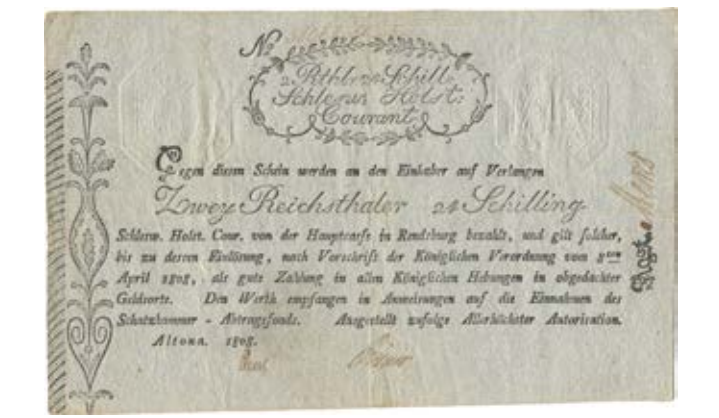 No
2 Rthlr 24 Schill.
Schlesw: Holst:
Courant.
Gegen diesen Schein werden an den Einhaber auf Verlangen
Zwey Reichsthaler 24 Schilling
Schlesw. Holst. Cour. von der Hauptcasse in Rendsburg bezahlt, und gilt solcher,
bis zu dessen Einlösung, nach Vorschrift der Königlichen Verordnung vom 8ten
April 1808, als gute Zahlung in allen Königlichen Hebungen in obgedachter
Geldsorte. Den Werth empfangen in Anweisungen auf die Einnahmen des
Schatzkammer-Abtragsfonds. Ausgestellt zufolge Allerhöchster Autorisation.
Altona. 1808.